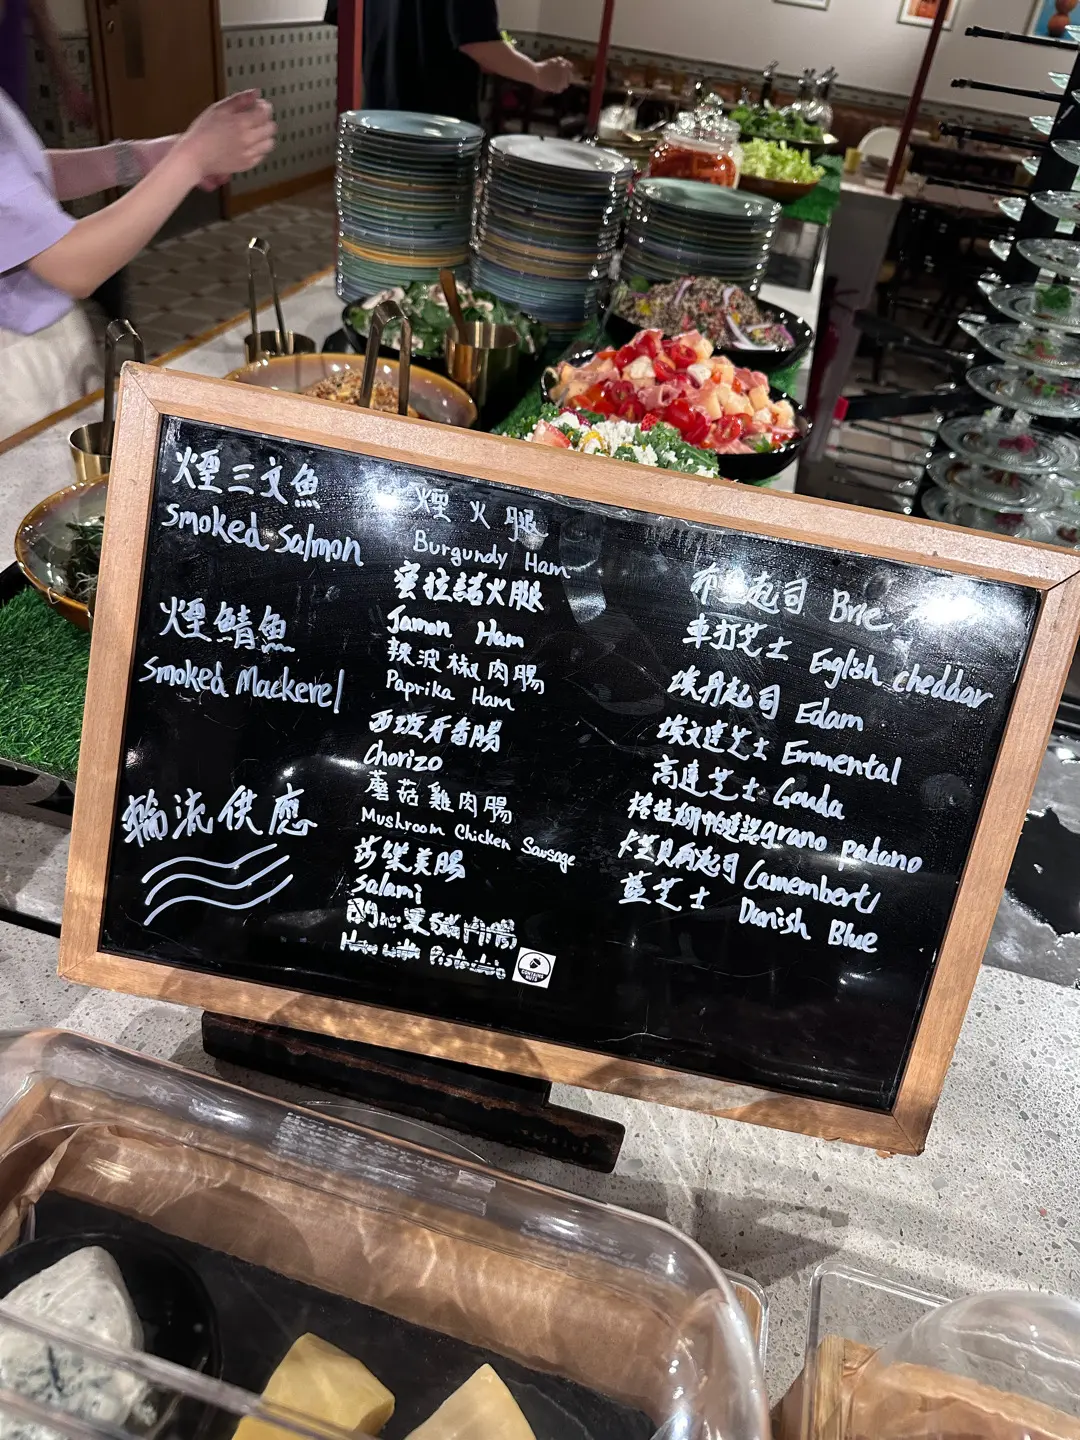 煙三文魚
Smoked Salmon
煙鯖魚
Smoked Mackerel
輪流供應
煙火腿
Burgundy Ham
蜜拉諾火腿
Jamon Ham
辣波椒肉腸
Paprika Ham
西班牙香腸
Chorizo
蘑菇雞肉腸
Mushroom Chicken Sausage
莎樂美腸
Salami
開心果豬肉腸
Ham with Pistachio
CONTAINS NUTS
布里起司 Brie
車打芝士 English cheddar
埃丹起司 Edam
埃文達芝士 Emmental
高達芝士 Gouda
grano padano
起司 Camembert
藍芝士 Danish Blue